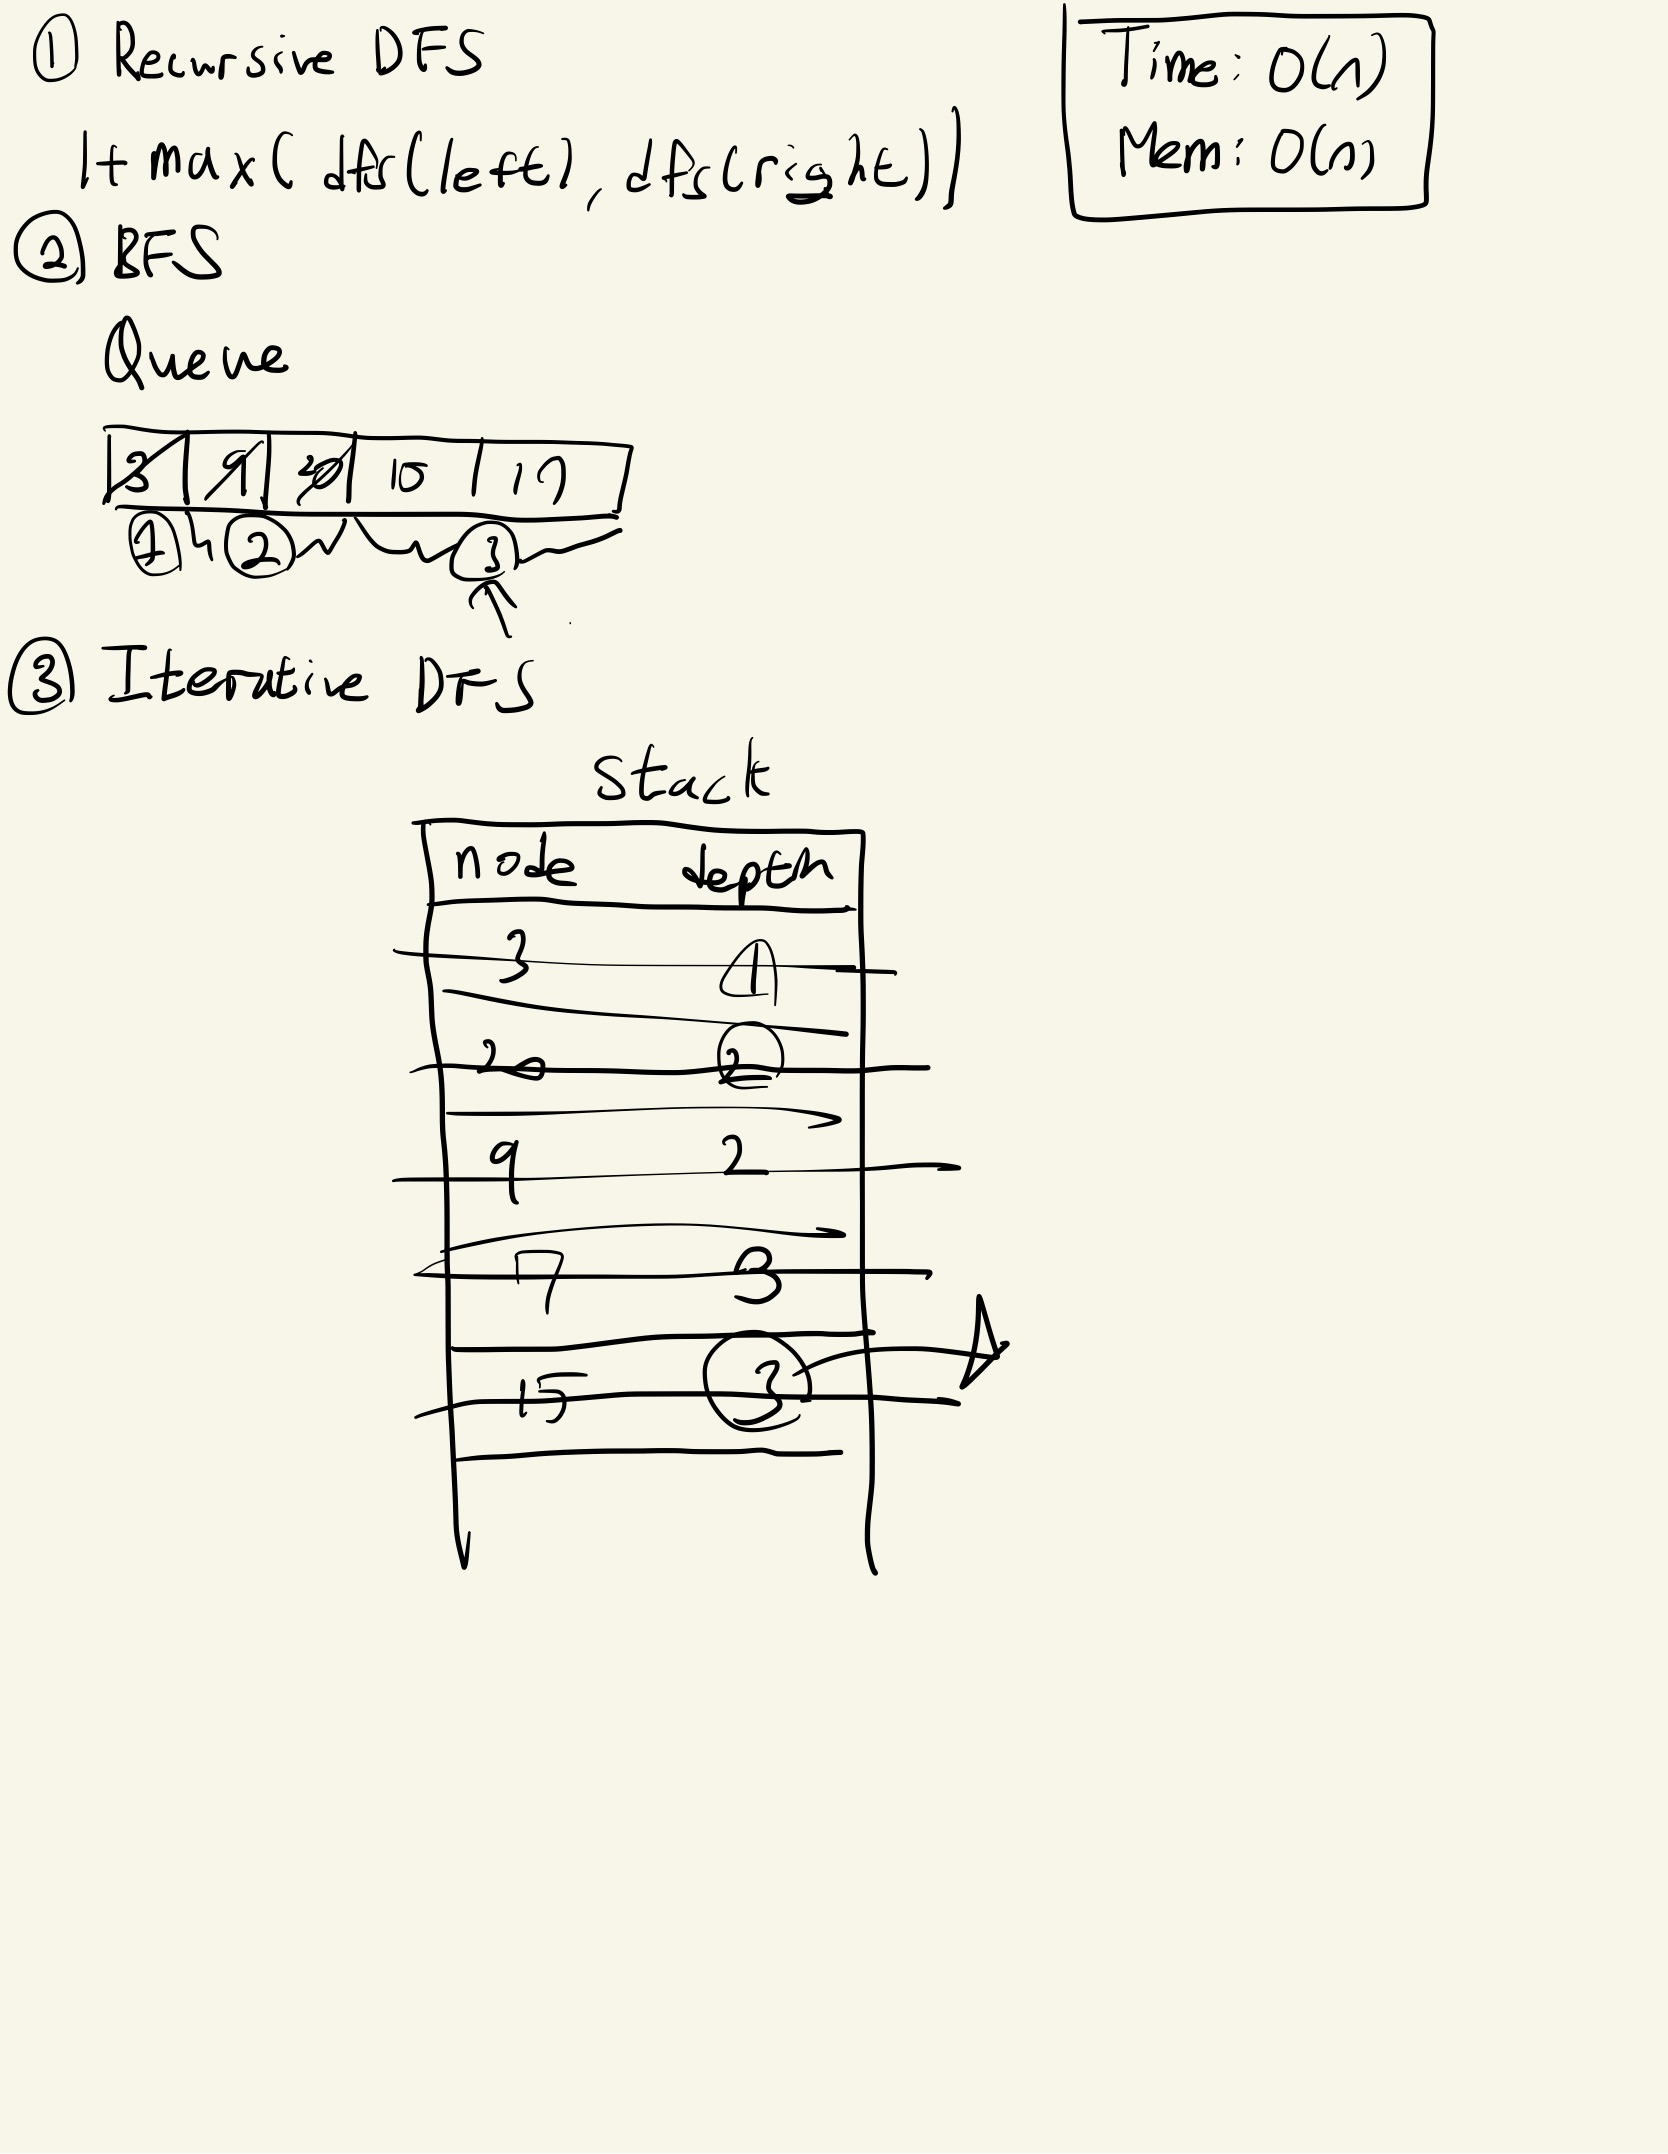 ① Recursive DFS
1+ max( dfs(left), dfs(right))
Time: O(n)
Mem: O(n)
② BFS
Queue
3 9 20 15 7
1 2 3
③ Iterative DFS
Stack
node depth
3 1
20 2
9 2
7 3
15 3